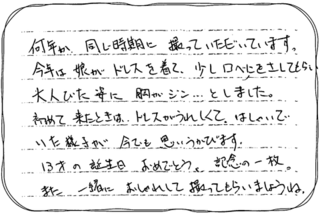 何年か 同じ時期に 撮っていただいています。
今年は娘がドレスを着て、少し口べにをさしてもらい
大人びた姿に 胸がジン…としました。
初めて来たときは、ドレスがうれしくて、はしゃいで
いた様子が 今でも 思いうかびます。
13才の誕生日 おめでとう。記念の一枚。
また 一緒に おしゃれして 撮ってもらいましょうね。